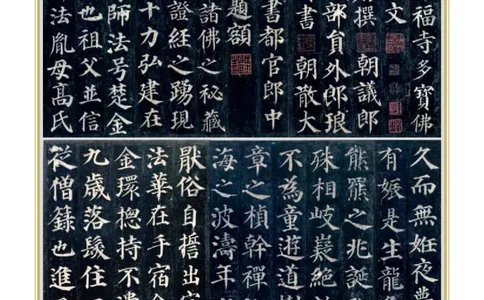 福寺多寶佛
文
撰 朝議郎
部員外郎琅
書 朝散大
書都官郎中
題額
諸佛之秘藏
證經之踴現
十力弘建在
師法号楚金
也祖父並信
法胤母高氏
久而無姙夜夢
有娠是生龍
熊羆之兆誕
殊相岐嶷絕
不為童遊道樹
章之楨幹禪
海之波濤年
厭俗自誓出
法華在手宿命
金環揔持不遺
九歲落髮住
從僧籙也進